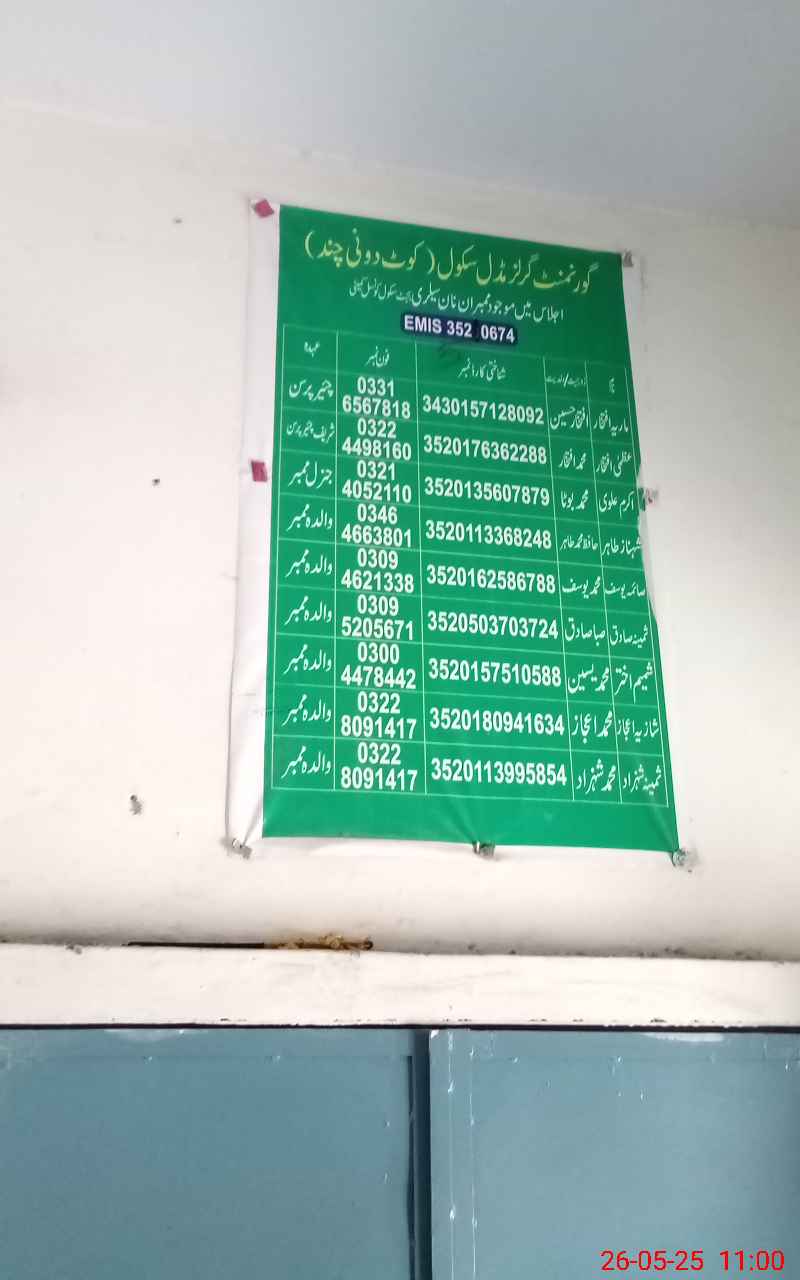 گورنمنٹ گرلز مڈل سکول (کوٹ دونی چند)
اجلاس میں موجود ممبران نان سیلری بجٹ سکول کونسل کمیٹی
EMIS 352 0674
نام ولدیت/زوجیت شناختی کارڈ نمبر فون نمبر عہدہ
ماریہ افتخار افتخار حسین 3430157128092 0331 6567818 چئیر پرسن
عظمیٰ افتخار محمد افتخار 3520176362288 0322 4498160 شریف چئیر پرسن
اکرم علوی محمد بوٹا 3520135607879 0321 4052110 جنرل ممبر
شہناز طاہر حافظ محمد طاہر 3520113368248 0346 4663801 والدہ ممبر
صائمہ یوسف محمد یوسف 3520162586788 0309 4621338 والدہ ممبر
ثمینہ صادق صبا صادق 3520503703724 0309 5205671 والدہ ممبر
شمیم اختر محمد یسین 3520157510588 0300 4478442 والدہ ممبر
شازیہ اعجاز محمد اعجاز 3520180941634 0322 8091417 والدہ ممبر
ثمینہ شہزاد محمد شہزاد 3520113995854 0322 8091417 والدہ ممبر
26-05-25 11:00